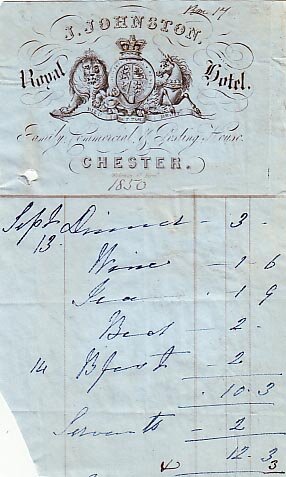 No 17
J. JOHNSTON,
Royal Hotel.
Family, Commercial & Posting House.
CHESTER.
1850
Sept Dinner - 3 -
13 Wine - 1 6
Tea - 1 9
Bed - 2 -
14 Bfast - 2
10 . 3
Servants - 2
12 . 3